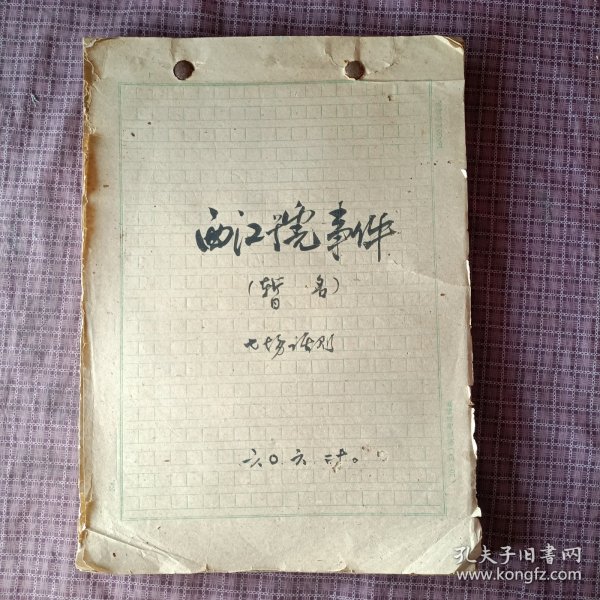 西江號事件
（暂名）
七场话剧
六〇.六.二十。
孔夫子旧書网
www.kongfz.com